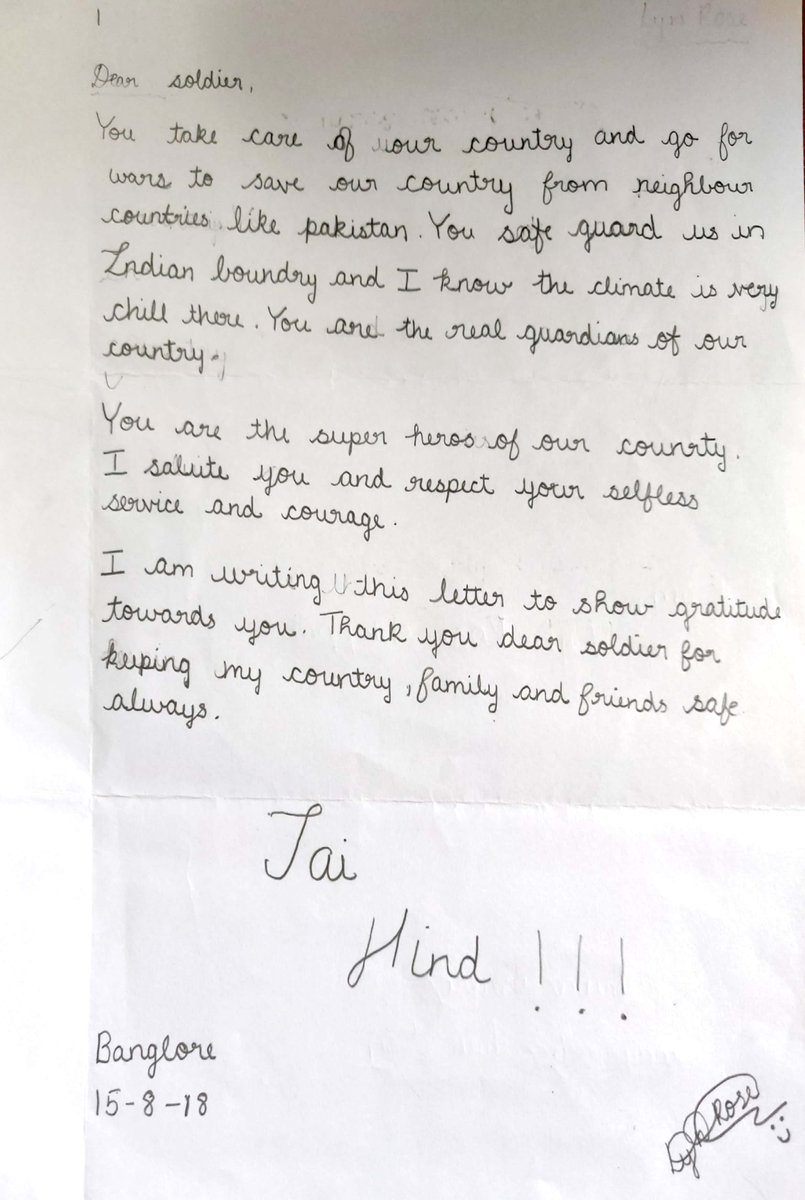 1
Lyn Rose
Dear soldier,
You take care of our country and go for
wars to save our country from neighbour
countries like pakistan. You safe guard us in
Indian boundry and I know the climate is very
chill there. You are the real guardians of our
country.
You are the super heros of our counrty.
I salute you and respect your selfless
service and courage.
I am writing this letter to show gratitude
towards you. Thank you dear soldier for
keeping my country, family and friends safe
always.
Jai
Hind !!!
Banglore
15-8-18
Rose